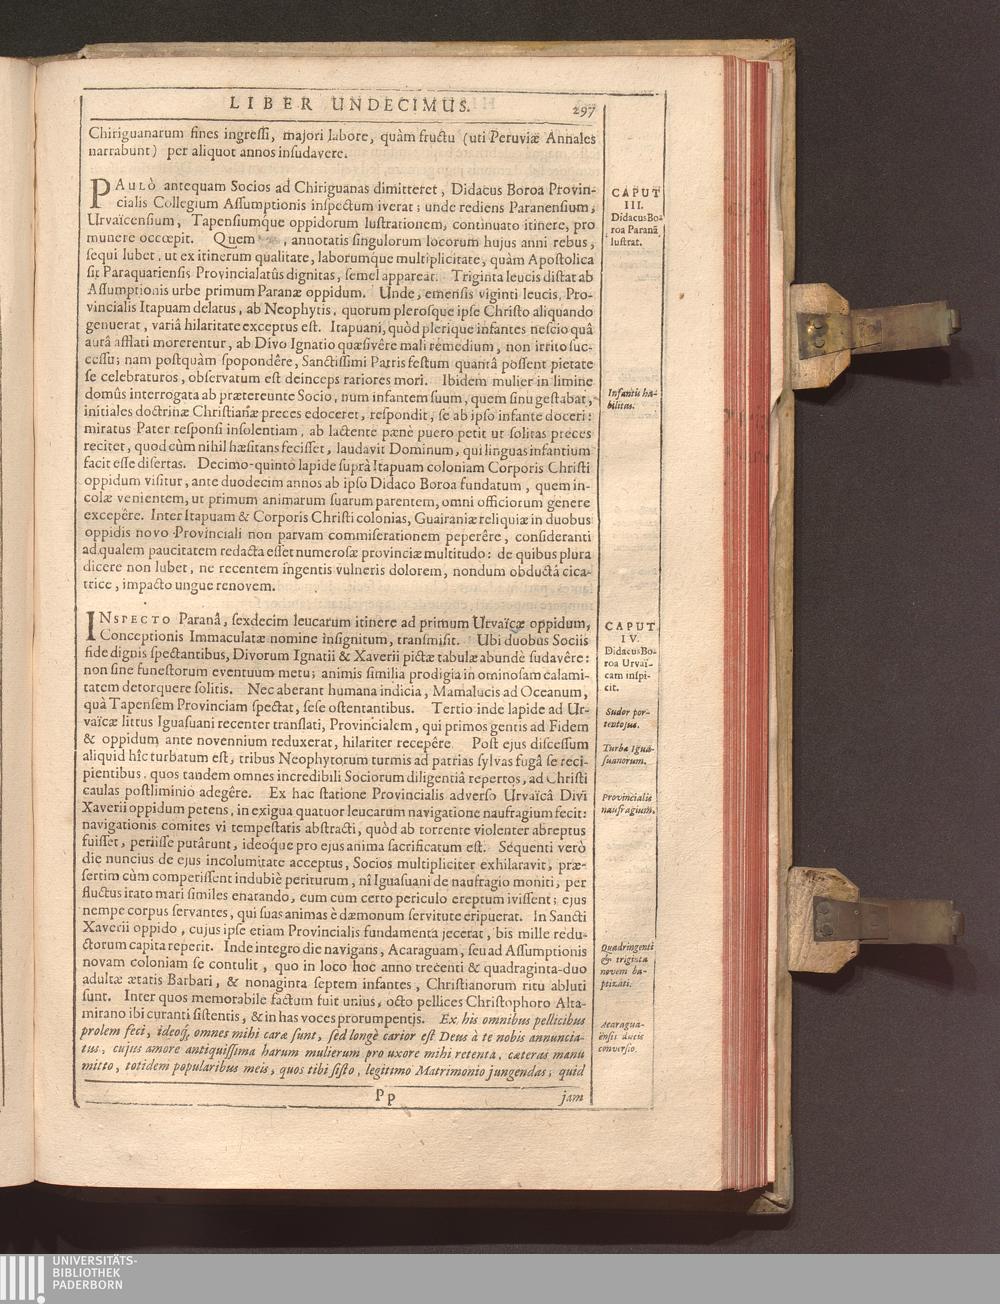 LIBER UNDECIMUS. 297
Chiriguanarum fines ingreſſi, majori labore, quàm fructu (uti Peruviæ Annales
narrabunt) per aliquot annos inſudavere.
PAULÒ antequam Socios ad Chiriguanas dimitteret, Didacus Boroa Provin-
cialis Collegium Aſſumptionis inſpectum iverat; unde rediens Paranenſium,
Urvaïcenſium, Tapenſiumque oppidorum luſtrationem, continuato itinere, pro
munere occœpit. Quem , annotatis ſingulorum locorum hujus anni rebus,
ſequi lubet, ut ex itinerum qualitate, laborumque multiplicitate, quàm Apoſtolica
ſit Paraquarienſis Provincialatûs dignitas, ſemel appareat. Triginta leucis diſtat ab
Aſſumptionis urbe primum Paranæ oppidum. Unde, emenſis viginti leucis, Pro-
vincialis Itapuam delatus, ab Neophytis, quorum pleroſque ipſe Chriſto aliquando
genuerat, variâ hilaritate exceptus eſt. Itapuani, quòd plerique infantes neſcio quâ
aurâ afflati morerentur, ab Divo Ignatio quæſivêre mali remedium, non irrito ſuc-
ceſſu; nam poſtquàm ſpopondêre, Sanctiſſimi Patris feſtum quantâ poſſent pietate
ſe celebraturos, obſervatum eſt deinceps rariores mori. Ibidem mulier in limine
domûs interrogata ab prætereunte Socio, num infantem ſuum, quem ſinu geſtabat,
initiales doctrinæ Chriſtianæ preces edoceret, reſpondit, ſe ab ipſo infante doceri:
miratus Pater reſponſi inſolentiam, ab lactente pænè puero petit ut ſolitas preces
recitet, quod cùm nihil hæſitans feciſſet, laudavit Dominum, qui linguas infantium
facit eſſe diſertas. Decimo-quinto lapide ſuprà Itapuam coloniam Corporis Chriſti
oppidum viſitur, ante duodecim annos ab ipſo Didaco Boroa fundatum, quem in-
colæ venientem, ut primum animarum ſuarum parentem, omni officiorum genere
excepêre. Inter Itapuam & Corporis Chriſti colonias, Guairaniæ reliquiæ in duobus
oppidis novo Provinciali non parvam commiſerationem peperêre, conſideranti
ad qualem paucitatem redacta eſſet numeroſæ provinciæ multitudo: de quibus plura
dicere non lubet, ne recentem ingentis vulneris dolorem, nondum obductâ cica-
trice, impacto ungue renovem.
CAPUT
III.
Didacus Bo-
roa Paranã
luſtrat.
Infantis ha-
bilitas.
INSPECTO Paranâ, ſexdecim leucarum itinere ad primum Urvaïcæ oppidum,
Conceptionis Immaculatæ nomine inſignitum, tranſmiſit. Ubi duobus Sociis
fide dignis ſpectantibus, Divorum Ignatii & Xaverii pictæ tabulæ abundè ſudavêre:
non ſine funeſtorum eventuum metu; animis ſimilia prodigia in ominoſam calami-
tatem detorquere ſolitis. Nec aberant humana indicia, Mamalucis ad Oceanum,
quà Tapenſem Provinciam ſpectat, ſeſe oſtentantibus. Tertio inde lapide ad Ur-
vaïcæ littus Iguaſuani recenter tranſlati, Provincialem, qui primos gentis ad Fidem
& oppidum ante novennium reduxerat, hilariter recepêre. Poſt ejus diſceſſum
aliquid hîc turbatum eſt, tribus Neophytorum turmis ad patrias ſylvas fugâ ſe reci-
pientibus, quos tandem omnes incredibili Sociorum diligentiâ repertos, ad Chriſti
caulas poſtliminio adegêre. Ex hac ſtatione Provincialis adverſo Urvaïcâ Divi
Xaverii oppidum petens, in exigua quatuor leucarum navigatione naufragium fecit:
navigationis comites vi tempeſtatis abſtracti, quòd ab torrente violenter abreptus
fuiſſet, periiſſe putârunt, ideoque pro ejus anima ſacrificatum eſt. Sequenti verò
die nuncius de ejus incolumitate acceptus, Socios multipliciter exhilaravit, præ-
ſertim cùm competiſſent indubiè periturum, nî Iguaſuani de naufragio moniti, per
fluctus irato mari ſimiles enatando, eum cum certo periculo ereptum iviſſent; ejus
nempe corpus ſervantes, qui ſuas animas è dæmonum ſervitute eripuerat. In Sancti
Xaverii oppido, cujus ipſe etiam Provincialis fundamenta jecerat, bis mille redu-
ctorum capita reperit. Inde integro die navigans, Acaraguam, ſeu ad Aſſumptionis
novam coloniam ſe contulit, quo in loco hoc anno trecenti & quadraginta-duo
adultæ ætatis Barbari, & nonaginta ſeptem infantes, Chriſtianorum ritu abluti
ſunt. Inter quos memorabile factum fuit unius, octo pellices Chriſtophoro Alta-
mirano ibi curanti ſiſtentis, & in has voces prorumpentis. Ex his omnibus pellicibus
prolem feci, ideoq́; omnes mihi caræ ſunt, ſed longè carior eſt Deus à te nobis annuncia-
tus, cujus amore antiquiſſima harum mulierum pro uxore mihi retenta, cæteras manu
mitto, totidem popularibus meis, quos tibi ſiſto, legitimo Matrimonio jungendas; quid
CAPUT
IV.
Didacus Bo-
roa Urvaï-
cam inſpi-
cit.
Sudor por-
tentoſus.
Turba Igua-
ſuanorum.
Provincialis
naufragium.
Quadringenti
& triginta
novem ba-
ptizati.
Acaragua-
ënſis ducis
converſio.
Pp jam
UNIVERSITÄTS-
BIBLIOTHEK
PADERBORN